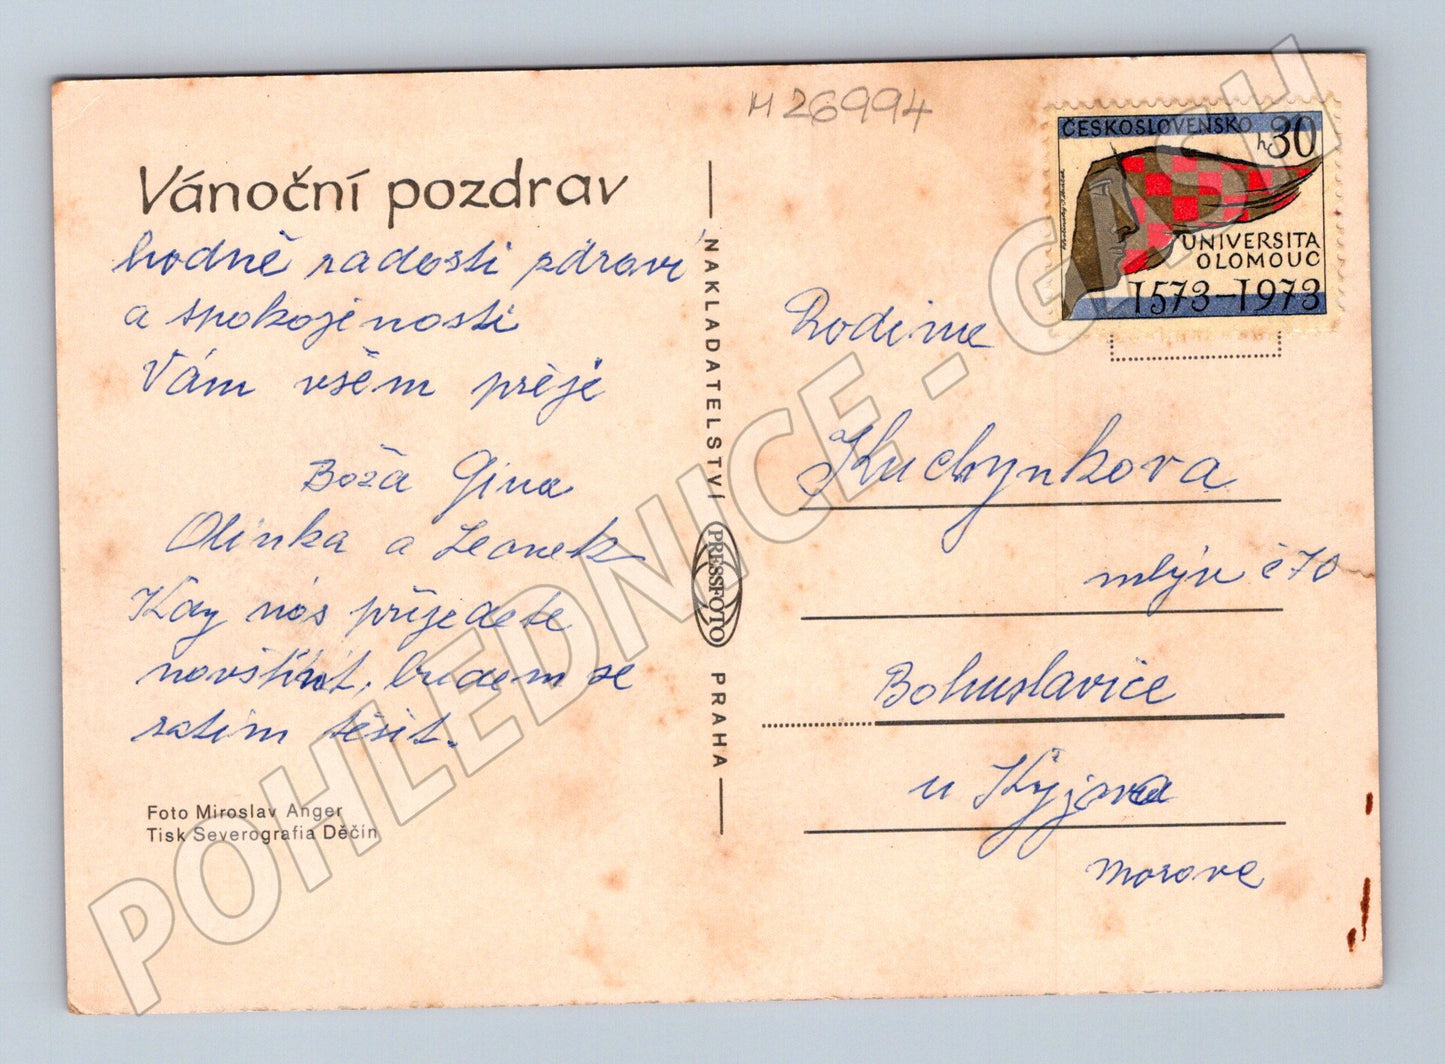 M 26994
Vánoční pozdrav
hodně radosti zdraví
a spokojenosti
Vám všem přeje
Boža Gina
Olinka a Leonek
Kdy nás přijedete
navštívit, budem se
zatím těšit.
Foto Miroslav Anger
Tisk Severografia Děčín
NAKLADATELSTVÍ PRESSFOTO PRAHA
ČESKOSLOVENSKO
h30
UNIVERSITA
OLOMOUC
1573–1973
Rodině
Kuchynkova
mlýn č 70
Bohuslavice
u Kyjova
Morava
POHLEDNICE - GASH